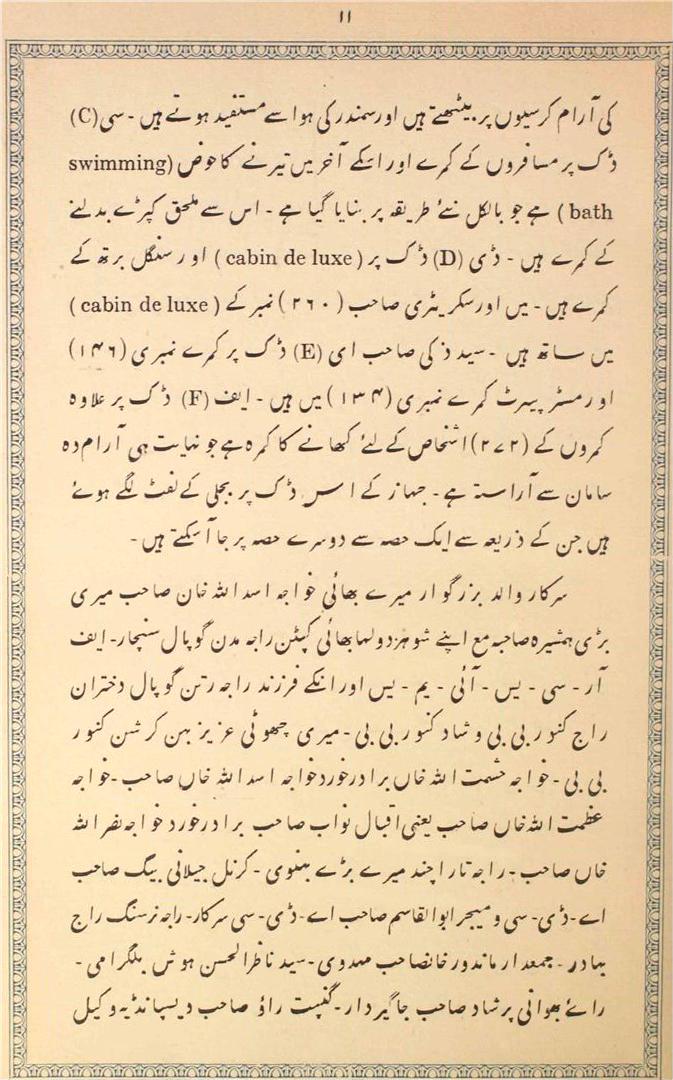 ۱۱
کی آرام کرسیوں پر بیٹھتے ہیں اور سمندر کی ہوا سے مستفید ہوتے ہیں ۔ سی (C)
ڈک پر مسافروں کے کمرے اور اسکے آخر میں تیرنے کا حوض (swimming
bath) ہے جو بالکل نئے طریقہ پر بنایا گیا ہے ۔ اس سے ملحق کپڑے بدلنے
کے کمرے ہیں ۔ ڈی (D) ڈک پر (cabin de luxe) اور سنگل برتھ کے
کمرے ہیں ۔ میں اور سکریٹری صاحب (۲۶۰) نمبر کے (cabin de luxe)
میں ساتھ ہیں ۔ سید ذکی صاحب ای (E) ڈک پر کمرے نمبری (۱۴۶)
اور مسٹر پیرٹ کمرے نمبری (۱۳۴) میں ہیں ۔ ایف (F) ڈک پر علاوہ
کمروں کے (۲۷۲) اشخاص کے لئے کھانے کا کمرہ ہے جو نہایت ہی آرام دہ
سامان سے آراستہ ہے ۔ جہاز کے اس ڈک پر بجلی کے لفٹ لگے ہوئے
ہیں جن کے ذریعہ سے ایک حصہ سے دوسرے حصہ پر جا آ سکتے ہیں ۔
سرکار والد بزرگوار میرے بھائی خواجہ اسد اللہ خان صاحب میری
بڑی ہمشیرہ صاحبہ مع اپنے شوہر دولہا بھائی کپٹن راجہ مدن گوپال سنچار ۔ ایف
آر ۔ سی ۔ یس ۔ آئی ۔ یم ۔ یس اور انکے فرزند راجہ رتن گوپال دختران
راج کنور بی بی و شاد کنور بی بی ۔ میری چھوٹی عزیز بہن کرشن کنور
بی بی ۔ خواجہ حشمت اللہ خاں برادر خورد خواجہ اسد اللہ خاں صاحب ۔ خواجہ
عظمت اللہ خاں صاحب یعنی اقبال نواب صاحب برادر خورد خواجہ نصر اللہ
خاں صاحب ۔ راجہ تارا چند میرے بڑے بہنوی ۔ کرنل جیلانی بیگ صاحب
اے ۔ ڈی ۔ سی و میجر ابوالقاسم صاحب اے ۔ ڈی ۔ سی سرکار ۔ راجہ نرسنگ راج
بہادر ۔ جمعدار ماندور خانصاحب مہدوی ۔ سید ناظر الحسن ہوش بلگرامی ۔
رائے بھوانی پرشاد صاحب جاگیردار ۔ گنپت راؤ صاحب دیسپانڈیہ وکیل